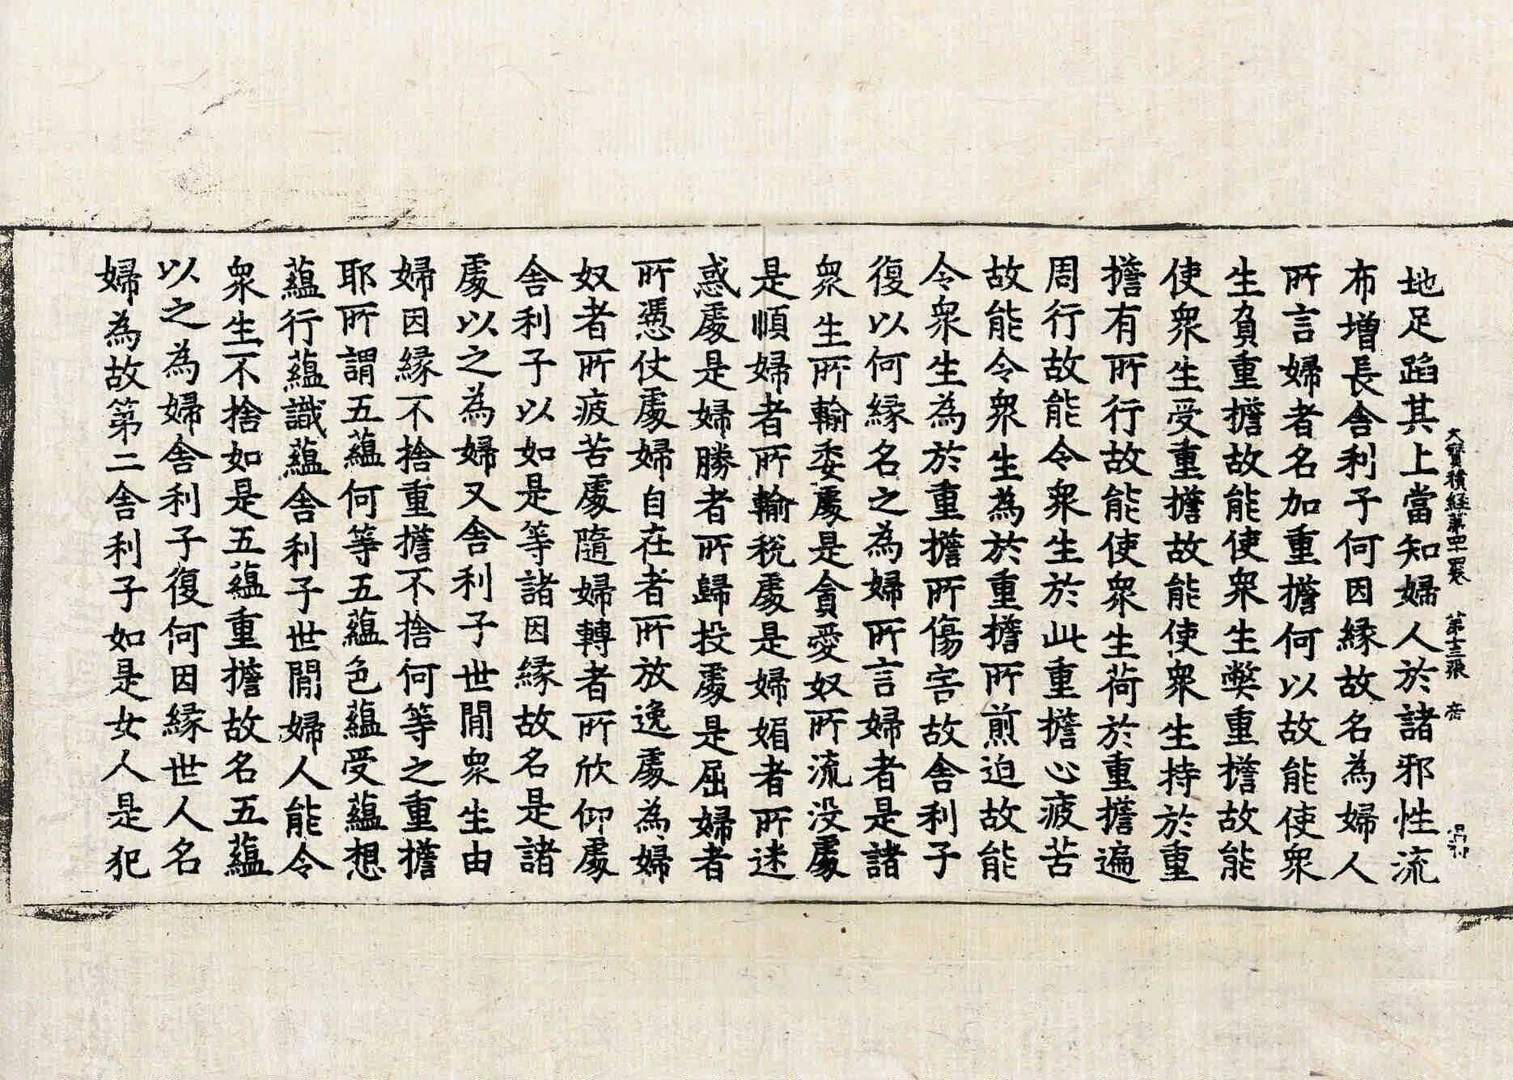 大寶積経第四卷 第十三張
地足蹈其上當知婦人於諸邪性流
布增長舍利子何因緣故名為婦人
所言婦者名加重擔何以故能使衆
生負重擔故能使衆生弊重擔故能
使衆生受重擔故能使衆生持於重
擔有所行故能使衆生荷於重擔遍
周行故能令衆生於此重擔心疲苦
故能令衆生為於重擔所煎迫故能
令衆生為於重擔所傷害故舍利子
復以何緣名之為婦所言婦者是諸
衆生所輸委處是貪愛奴所流没處
是順婦者所輸稅處是婦媚者所迷
惑處是婦勝者所歸投處是屈婦者
所憑仗處婦自在者所放逸處為婦
奴者所疲苦處隨婦轉者所欣仰處
舍利子以如是等諸因緣故名是諸
處以之為婦又舍利子世間衆生由
婦因緣不捨重擔不捨何等之重擔
耶所謂五蘊何等五蘊色蘊受蘊想
蘊行蘊識蘊舍利子世間婦人能令
衆生不捨如是五蘊重擔故名五蘊
以之為婦舍利子復何因緣世人名
婦為故第二舍利子如是女人是犯